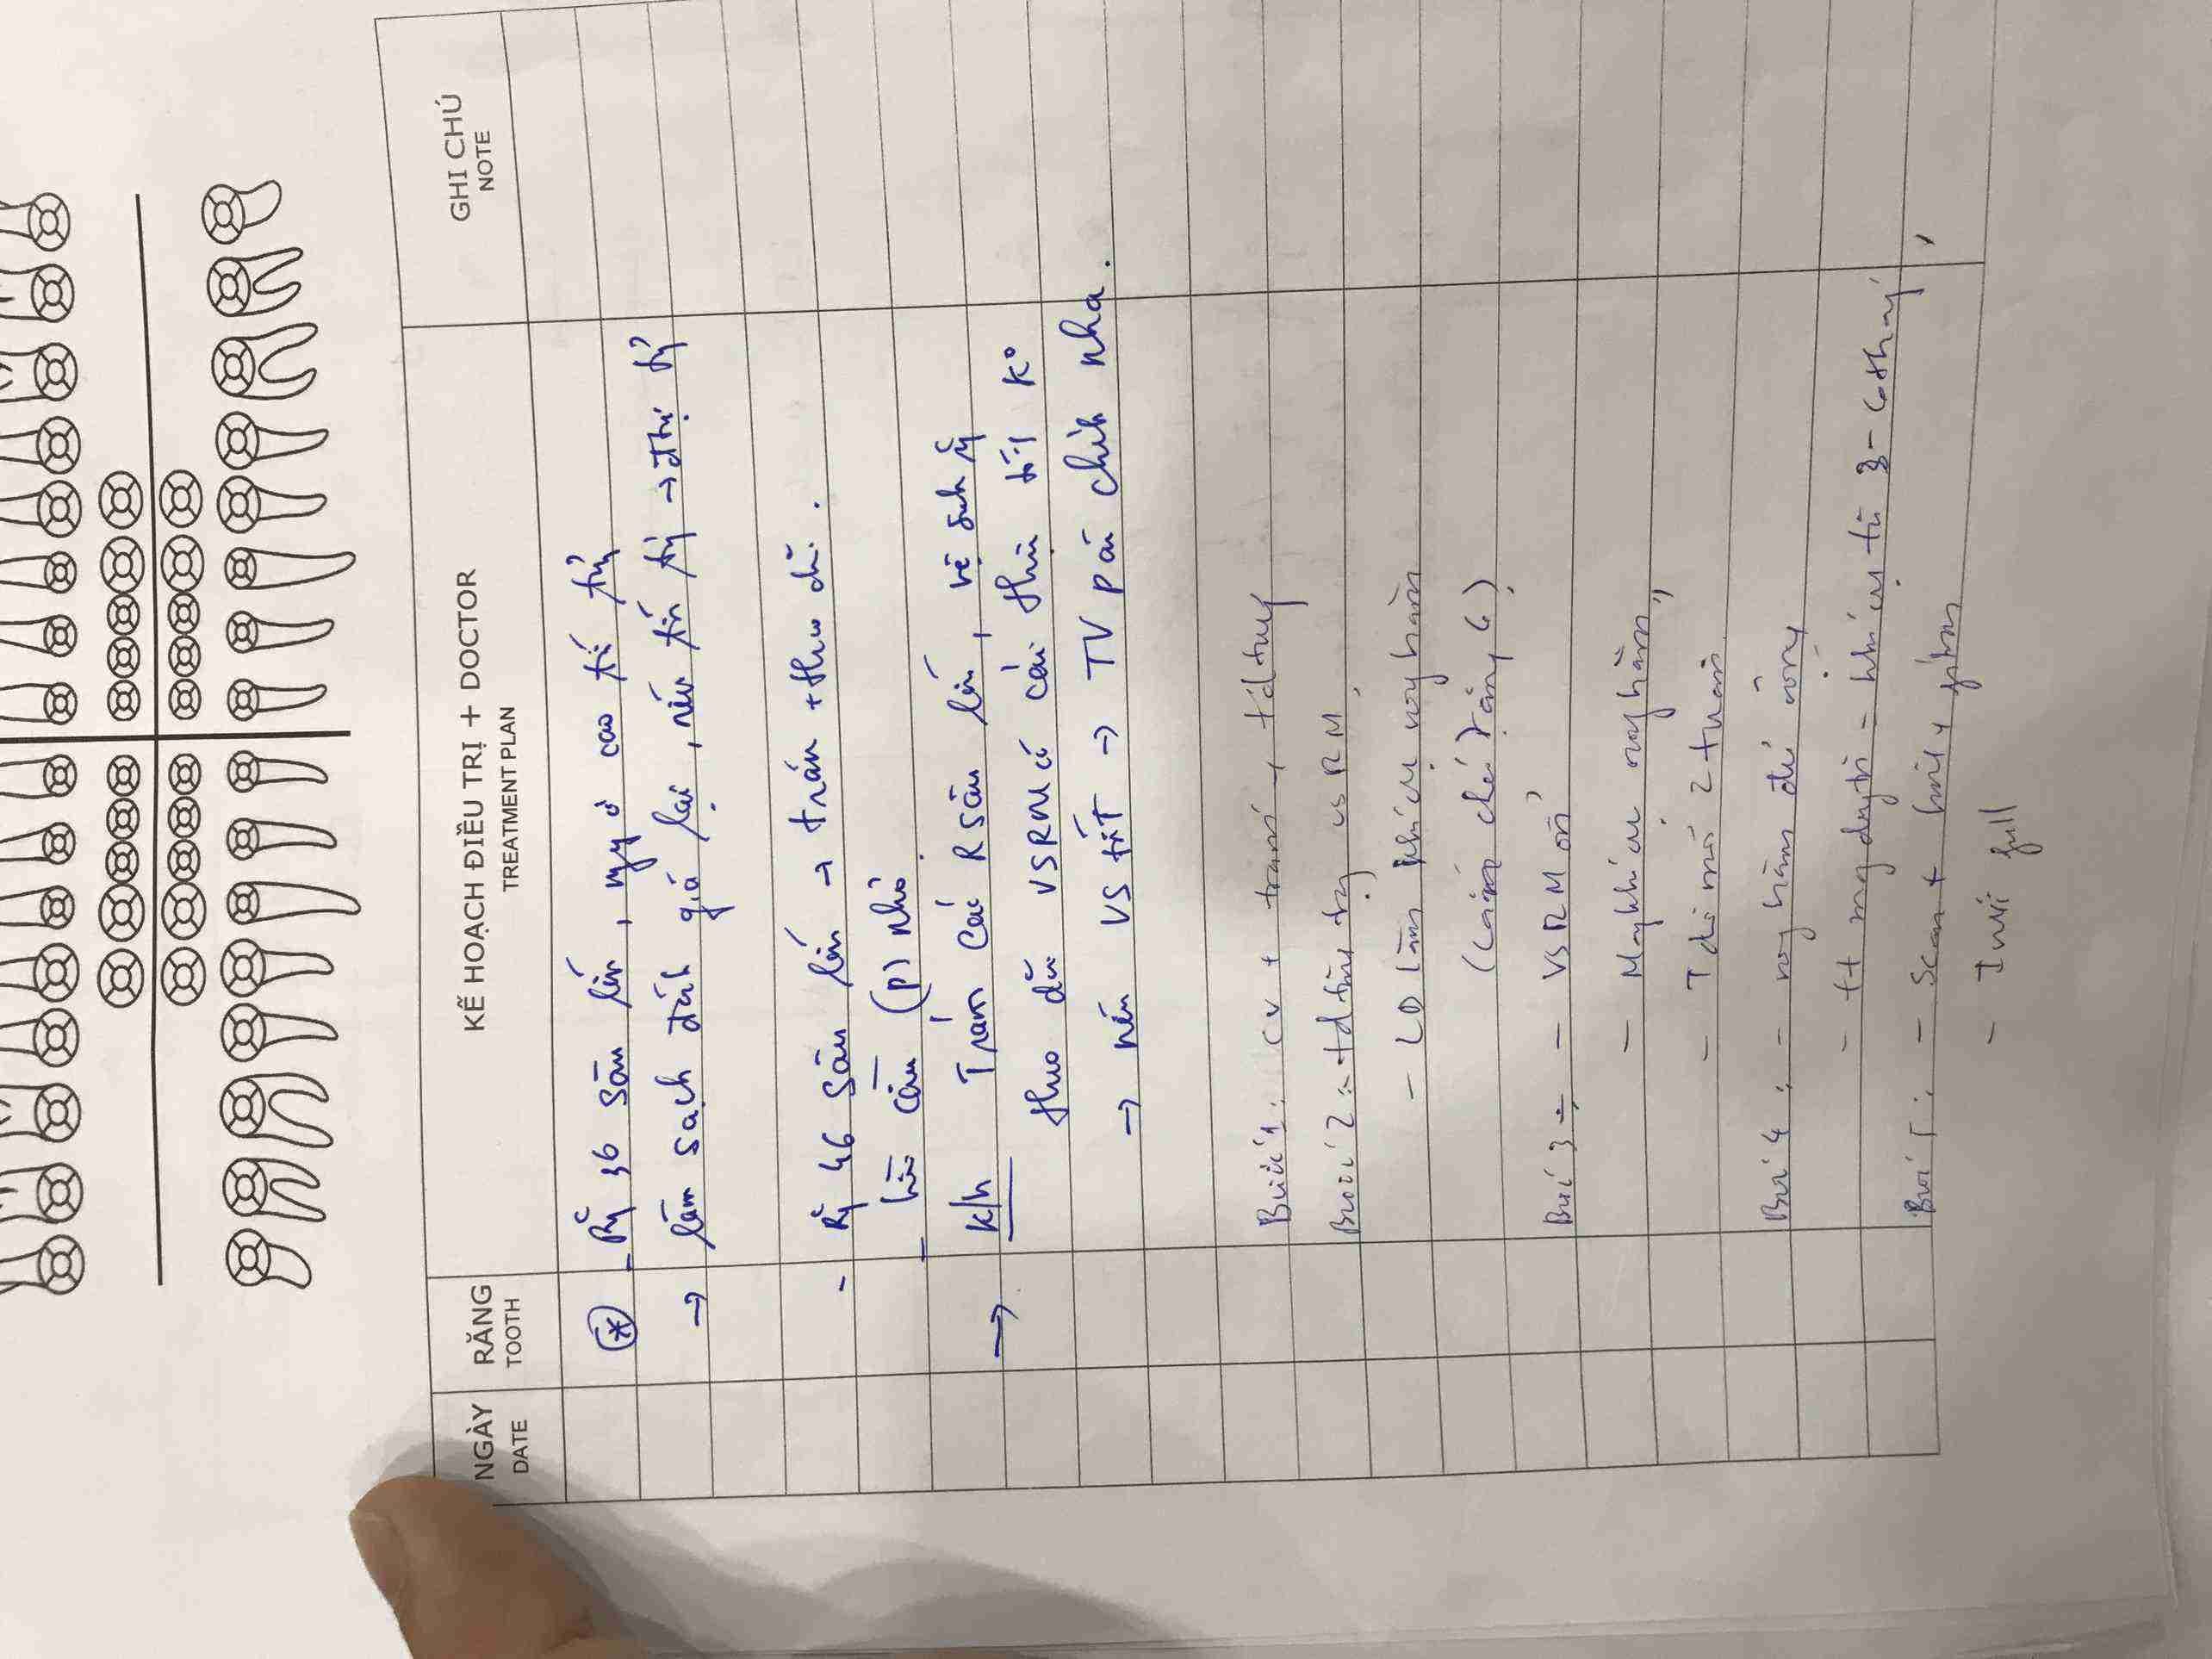 NGÀY
DATE
RĂNG
TOOTH
KẾ HOẠCH ĐIỀU TRỊ + DOCTOR
TREATMENT PLAN
GHI CHÚ
NOTE
* - R 36 sâu lớn, ngy cơ cao tủy
→ làm sạch đánh giá lại, nếu tủy → Đtrị tủy
- R 46 sâu lớn → trám + theo dõi.
- hô cằm (P) nhỏ
→ K/h Trám các R sâu lớn, vệ sinh kỹ
theo dõi VSRM có cải thiện tốt K°
→ nếu VS tốt → TV PÁ chỉnh nha.
Buổi 1: CV + trám
Buổi 2: VSRM
- LD làm khí cụ nong hàm
răng 6)
Buổi 3: - VSRM ổn
- Mang khí cụ nong hàm
- T dõi mỗi 2 tuần
Buổi 4: - nong hàm đủ rộng
- tt mang duy trì - khí cụ từ 3-6 tháng
Buổi 5: - Scan +
- Invi full